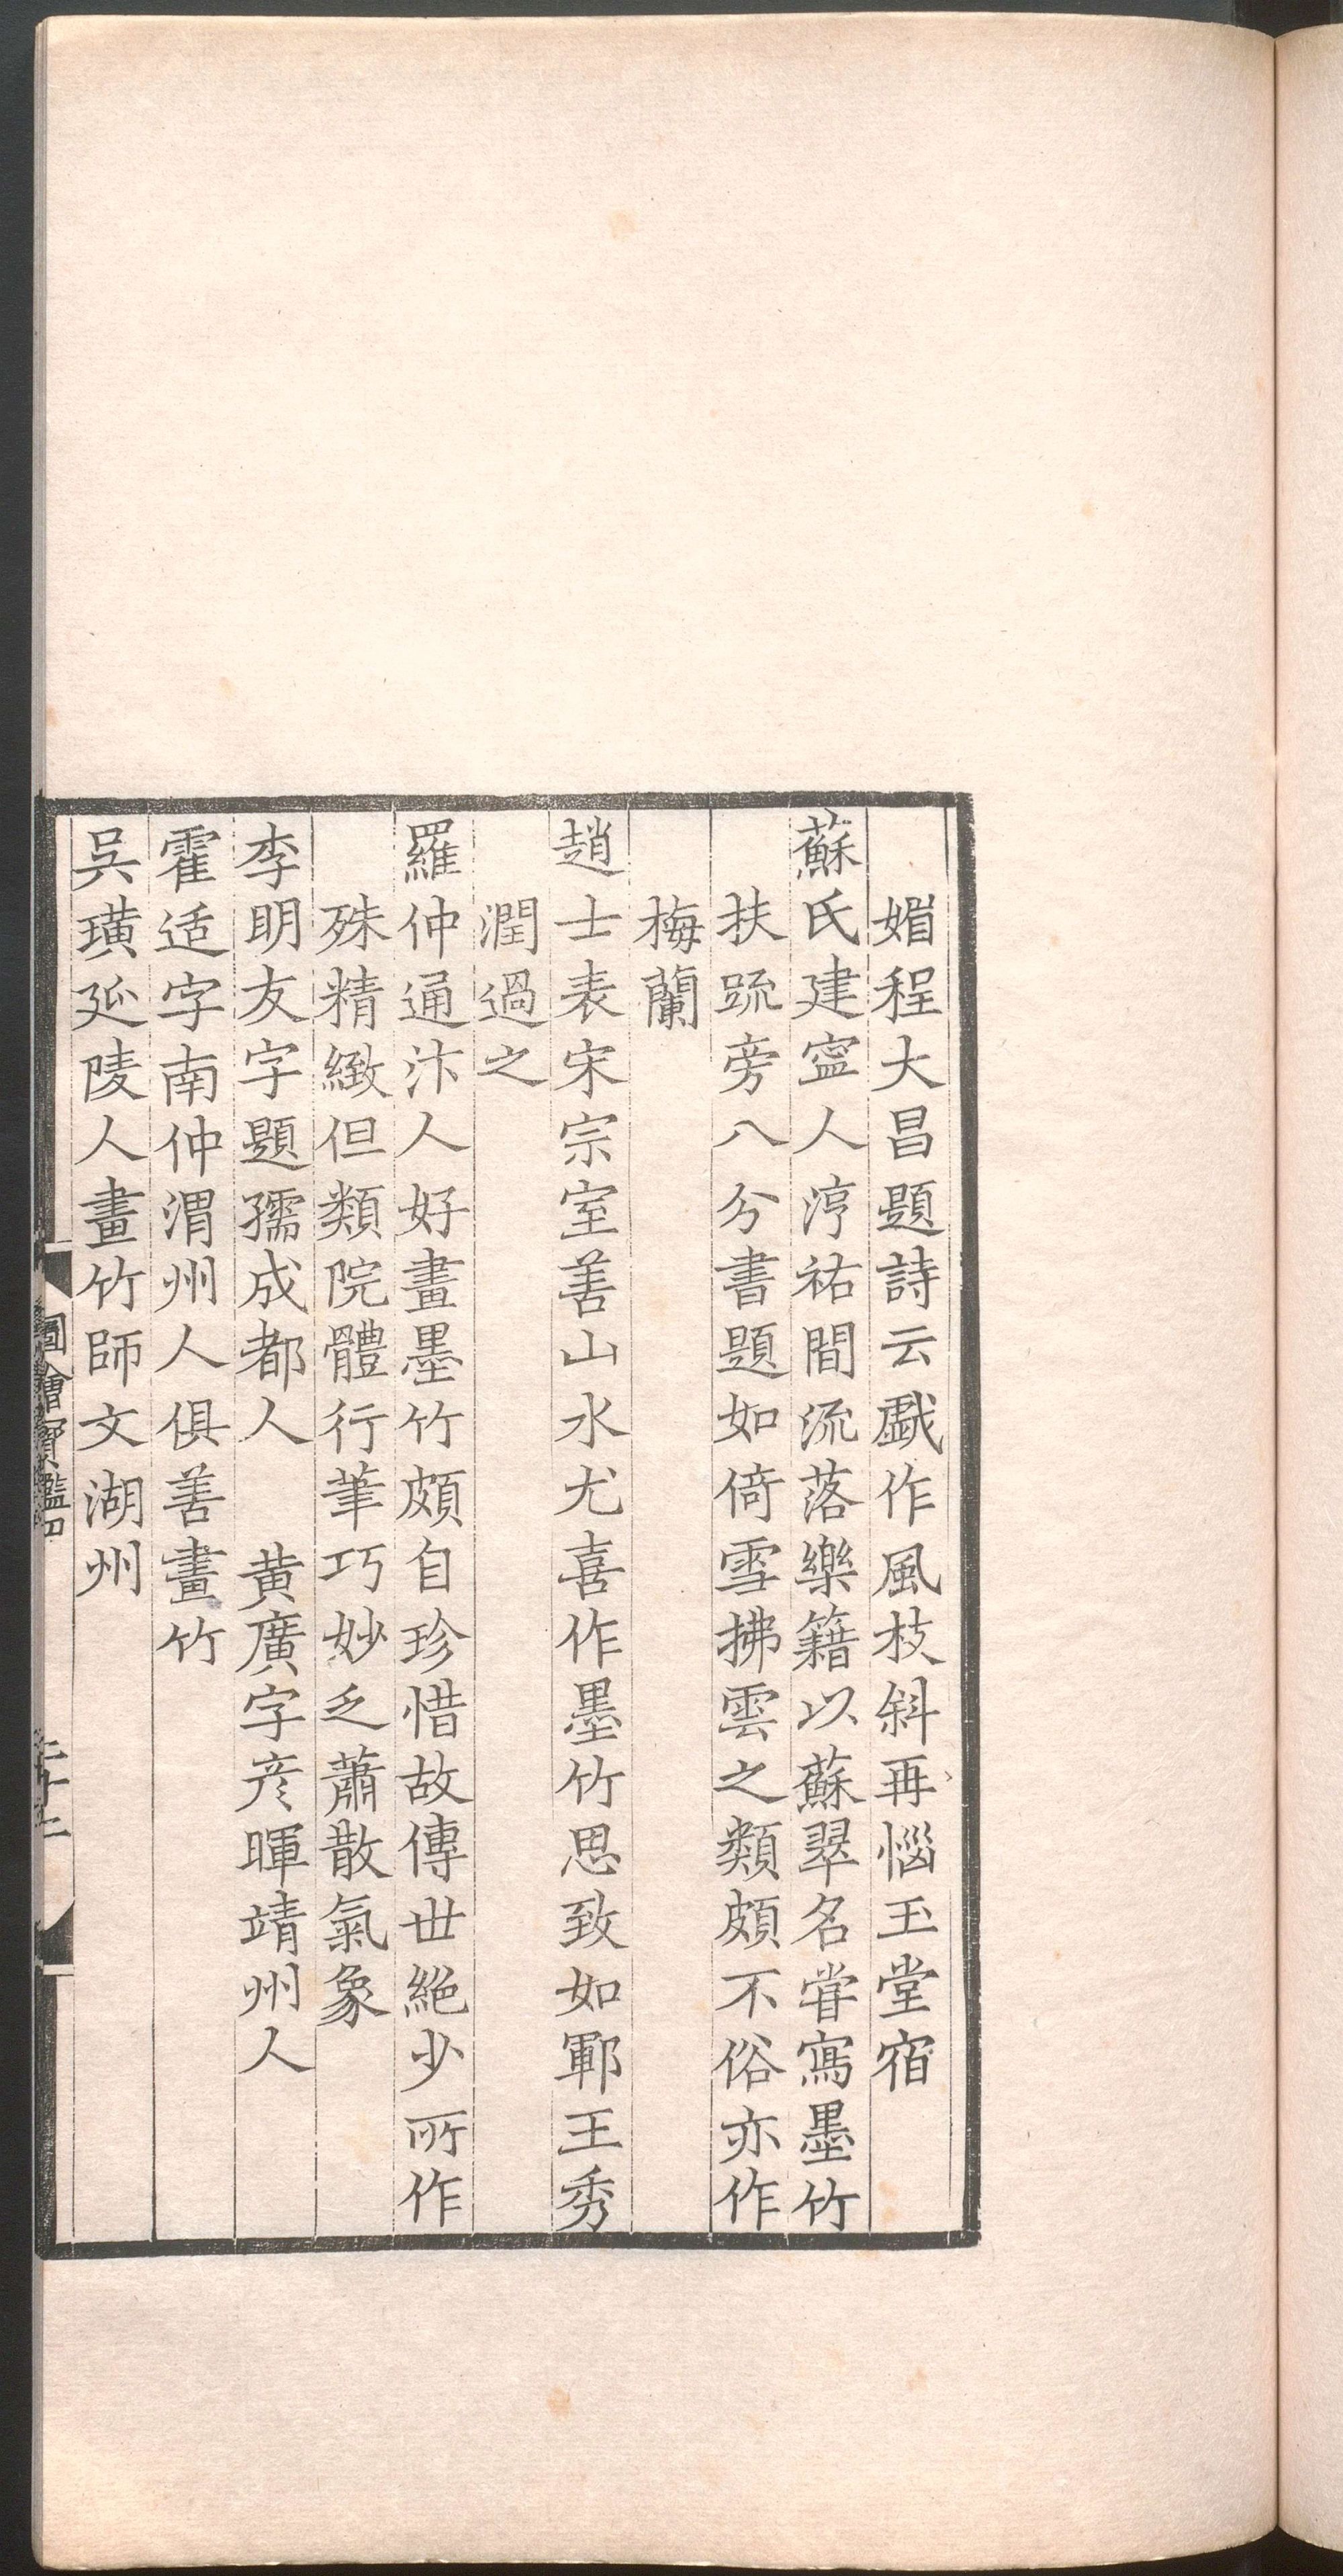 媚程大昌題詩云戲作風枝斜再惱玉堂宿
蘇氏建寧人淳祐間流落樂籍以蘇翠名甞寫墨竹
扶疏旁八分書題如倚雪拂雲之類頗不俗亦作
梅蘭
趙士表宋宗室善山水尤喜作墨竹思致如鄆王秀
潤過之
羅仲通汴人好畫墨竹頗自珍惜故傳世絕少所作
殊精緻但類院體行筆巧妙乏蕭散氣象
李明友字題孺成都人　黄廣字彥暉靖州人
霍适字南仲渭州人俱善畫竹
吳璜延陵人畫竹師文湖州
圖繪寶鑑四